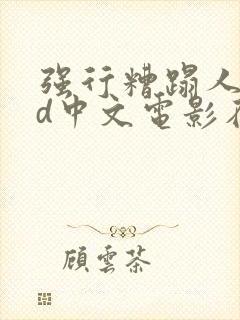 强行糟蹋人
d中文電影在
顧雲茶